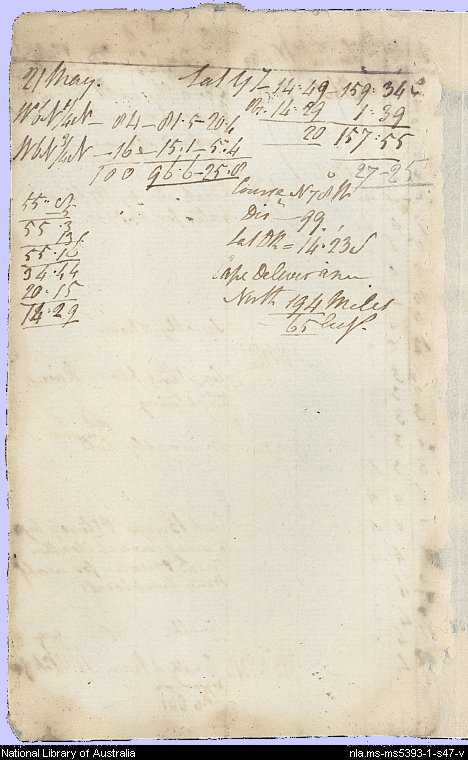 21 May.
Lat Yt 14=49 - 159:34
WbN ¼N - 84 - 81.5 - 20.6
Or. 14:29 1:39
20 157:55
WbN ¾N - 16 = 15.1 - 5.4
100 96.6 - 25.8
27-25
Course N 78 W
55.
Dis 99
55:3
13
Lat DR = 14:23 S
55:16
34:44
Cape Deliverance
20:15
North 194 Miles
14:29
65
National Library of Australia
nla.ms-ms5393-1-s47-v